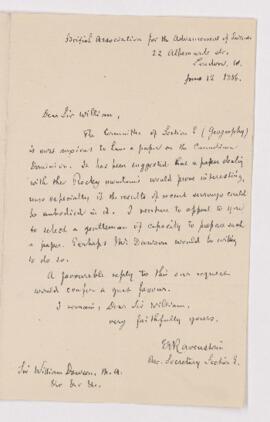 British Association for the Advancement of Science
22 Albemarle St.
London, W.
June 12 1886.
Dear Sir William,
The Committee of Section E (Geography)
is very anxious to have a paper on the Canadian
Dominion. It has been suggested that a paper dealing
with the Rocky mountains would prove interesting,
more especially if the results of recent surveys could
be embodied in it. I venture to appeal to you
to select a gentleman of capacity to prepare such
a paper. Perhaps Mr. Dawson would be willing
to do so.
A favourable reply to this our request
would confer a great favour.
I remain, Dear Sir William,
very faithfully yours,
EGRavenstein
Secretary Section E.
Sir William Dawson, M.A.